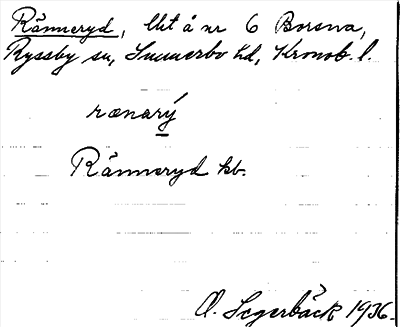 Ränneryd, lht å nr 6 Borsna,
Ryssby sn, Sunnerbo hd, Kronob. l.
rænarý
Ränneryd kb.
O. Segerbäck 1936.